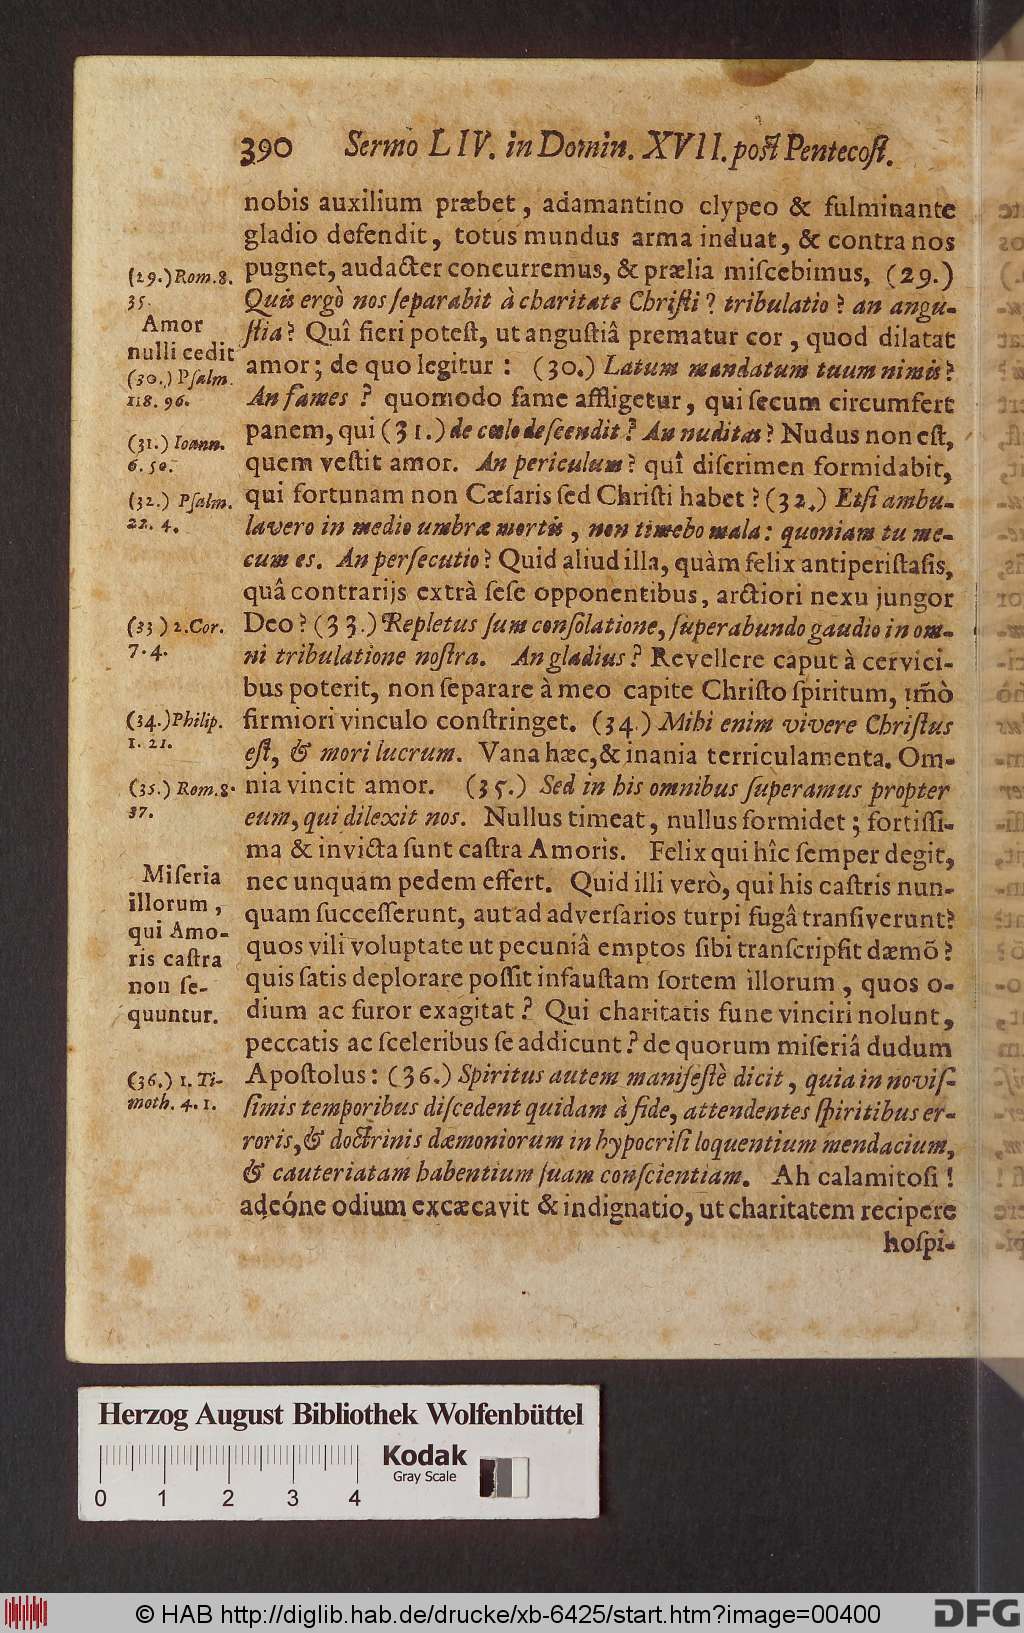 390 Sermo LIV. in Domin. XVII. post Pentecost.
nobis auxilium præbet, adamantino clypeo & fulminante
gladio defendit, totus mundus arma induat, & contra nos
pugnet, audacter concurremus, & prælia miſcebimus, (29.)
Quis ergò nos ſeparabit à charitate Chriſti? tribulatio? an angu-
ſtia? Quî fieri poteſt, ut anguſtiâ prematur cor, quod dilatat
amor; de quo legitur: (30.) Latum mandatum tuum nimis?
An fames? quomodo fame affligetur, qui ſecum circumfert
panem, qui (31.) de cœlo deſcendit? An nuditas? Nudus non eſt,
quem veſtit amor. An periculum? quî diſcrimen formidabit,
qui fortunam non Cæſaris ſed Chriſti habet? (32.) Etſi ambu-
lavero in medio umbræ mortis, non timebo mala: quoniam tu me-
cum es. An perſecutio? Quid aliud illa, quàm felix antiperiſtaſis,
quâ contrarijs extrà ſeſe opponentibus, arctiori nexu jungor
Deo? (33.) Repletus ſum conſolatione, ſuperabundo gaudio in om-
ni tribulatione noſtra. An gladius? Revellere caput à cervici-
bus poterit, non ſeparare à meo capite Chriſto ſpiritum, im̃ò
firmiori vinculo conſtringet. (34.) Mihi enim vivere Chriſtus
eſt, & mori lucrum. Vana hæc, & inania terriculamenta. Om-
nia vincit amor. (35.) Sed in his omnibus ſuperamus propter
eum, qui dilexit nos. Nullus timeat, nullus formidet; fortiſſi-
ma & invicta ſunt caſtra Amoris. Felix qui hîc ſemper degit,
nec unquam pedem effert. Quid illi verò, qui his caſtris nun-
quam ſucceſſerunt, aut ad adverſarios turpi fugâ tranſiverunt?
quos vili voluptate ut pecuniâ emptos ſibi tranſcripſit dæmõ?
quis ſatis deplorare poſſit infauſtam ſortem illorum, quos o-
dium ac furor exagitat? Qui charitatis fune vinciri nolunt,
peccatis ac ſceleribus ſe addicunt? de quorum miſeriâ dudum
Apoſtolus: (36.) Spiritus autem manifeſtè dicit, quia in noviſ-
ſimis temporibus diſcedent quidam à fide, attendentes ſpiritibus er-
roris, & doctrinis dæmoniorum in hypocriſi loquentium mendacium,
& cauteriatam habentium ſuam conſcientiam. Ah calamitoſi!
adeóne odium excæcavit & indignatio, ut charitatem recipere
hoſpi-
(29.) Rom. 8.
35.
Amor
nulli cedit
(30.) Pſalm.
118. 96.
(31.) Ioann.
6. 50.
(32.) Pſalm.
22. 4.
(33) 2. Cor.
7. 4.
(34.) Philip.
1. 21.
(35.) Rom. 8.
37.
Miſeria
illorum,
qui Amo-
ris caſtra
non ſe-
quuntur.
(36.) 1. Ti-
moth. 4. 1.
Herzog August Bibliothek Wolfenbüttel
Kodak
Gray Scale
0 1 2 3 4
© HAB http://diglib.hab.de/drucke/xb-6425/start.htm?image=00400
DFG